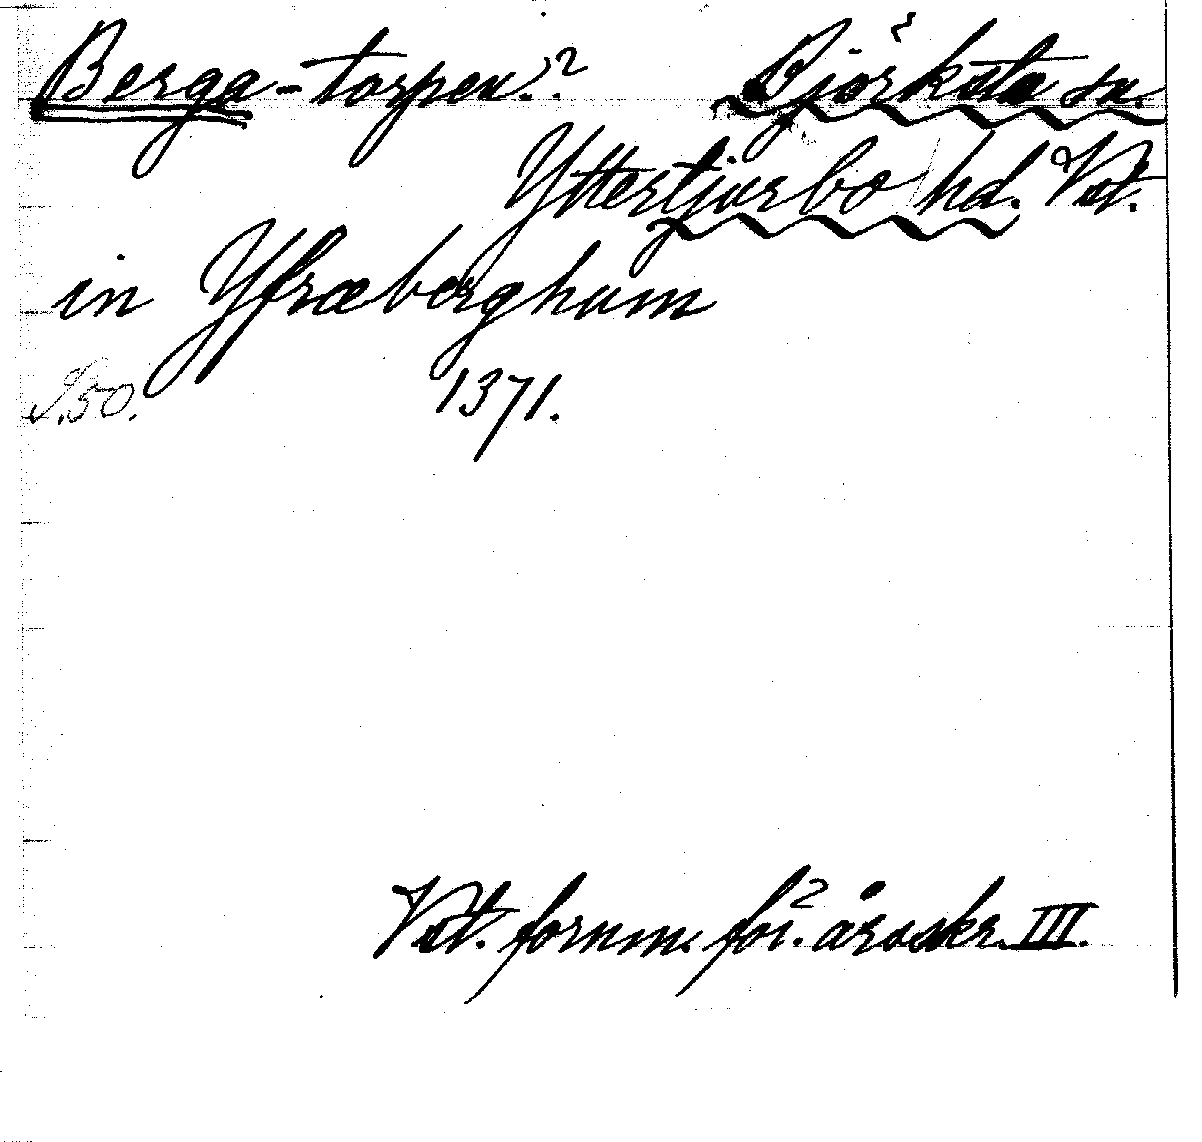 Berga-torpen.? Björksta sn.
Yttertjurbo hd. Vst.
in Yfræberghum
S. 50. 1371.
Vst. fornm. för. årsskr. III.